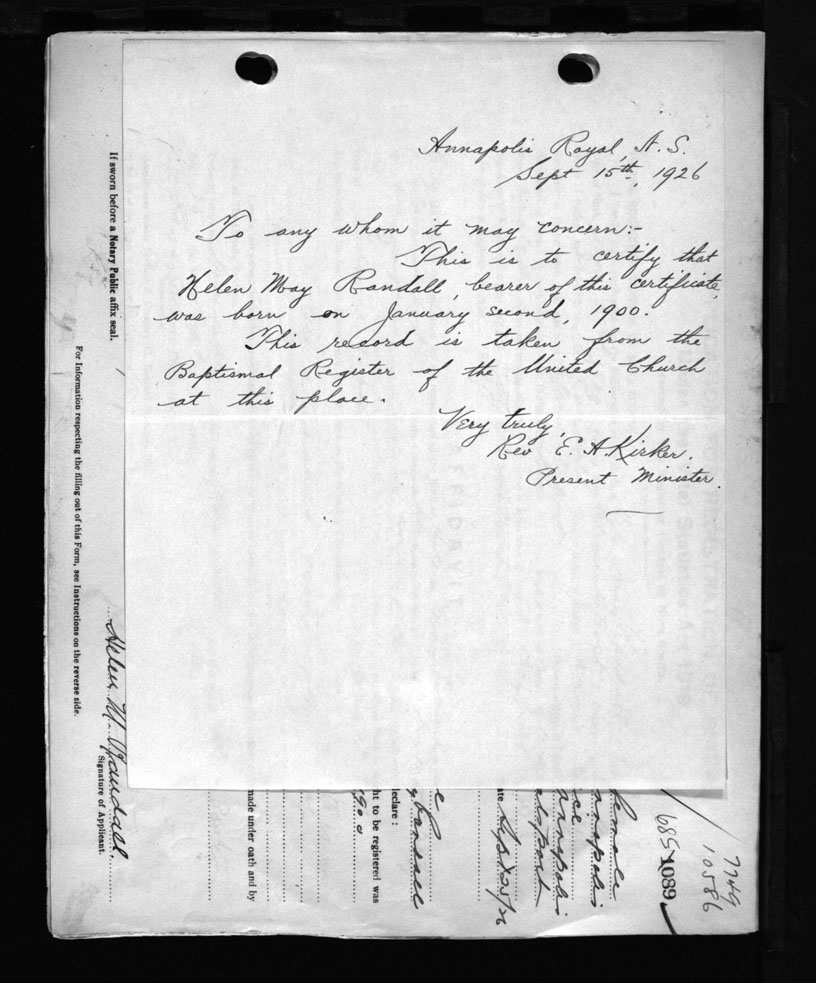 Annapolis Royal, N.S.
Sept 15th, 1926
To any whom it may concern:-
This is to certify that
Helen May Randall, bearer of this certificate,
was born on January second, 1900.
This record is taken from the
Baptismal Register of the United Church
at this place.
Very truly,
Rev E. A. Kirker.
Present Minister.
If sworn before a Notary Public affix seal.
For Information respecting the filling out of this Form, see Instructions on the reverse side.
Helen M. Randall.
Signature of Applicant.
made under oath and by
1900
ht to be registered was
declare :
AFFIDAVIT
ate Sept 25/26
Female
nnapolis
6851089
10586
7749